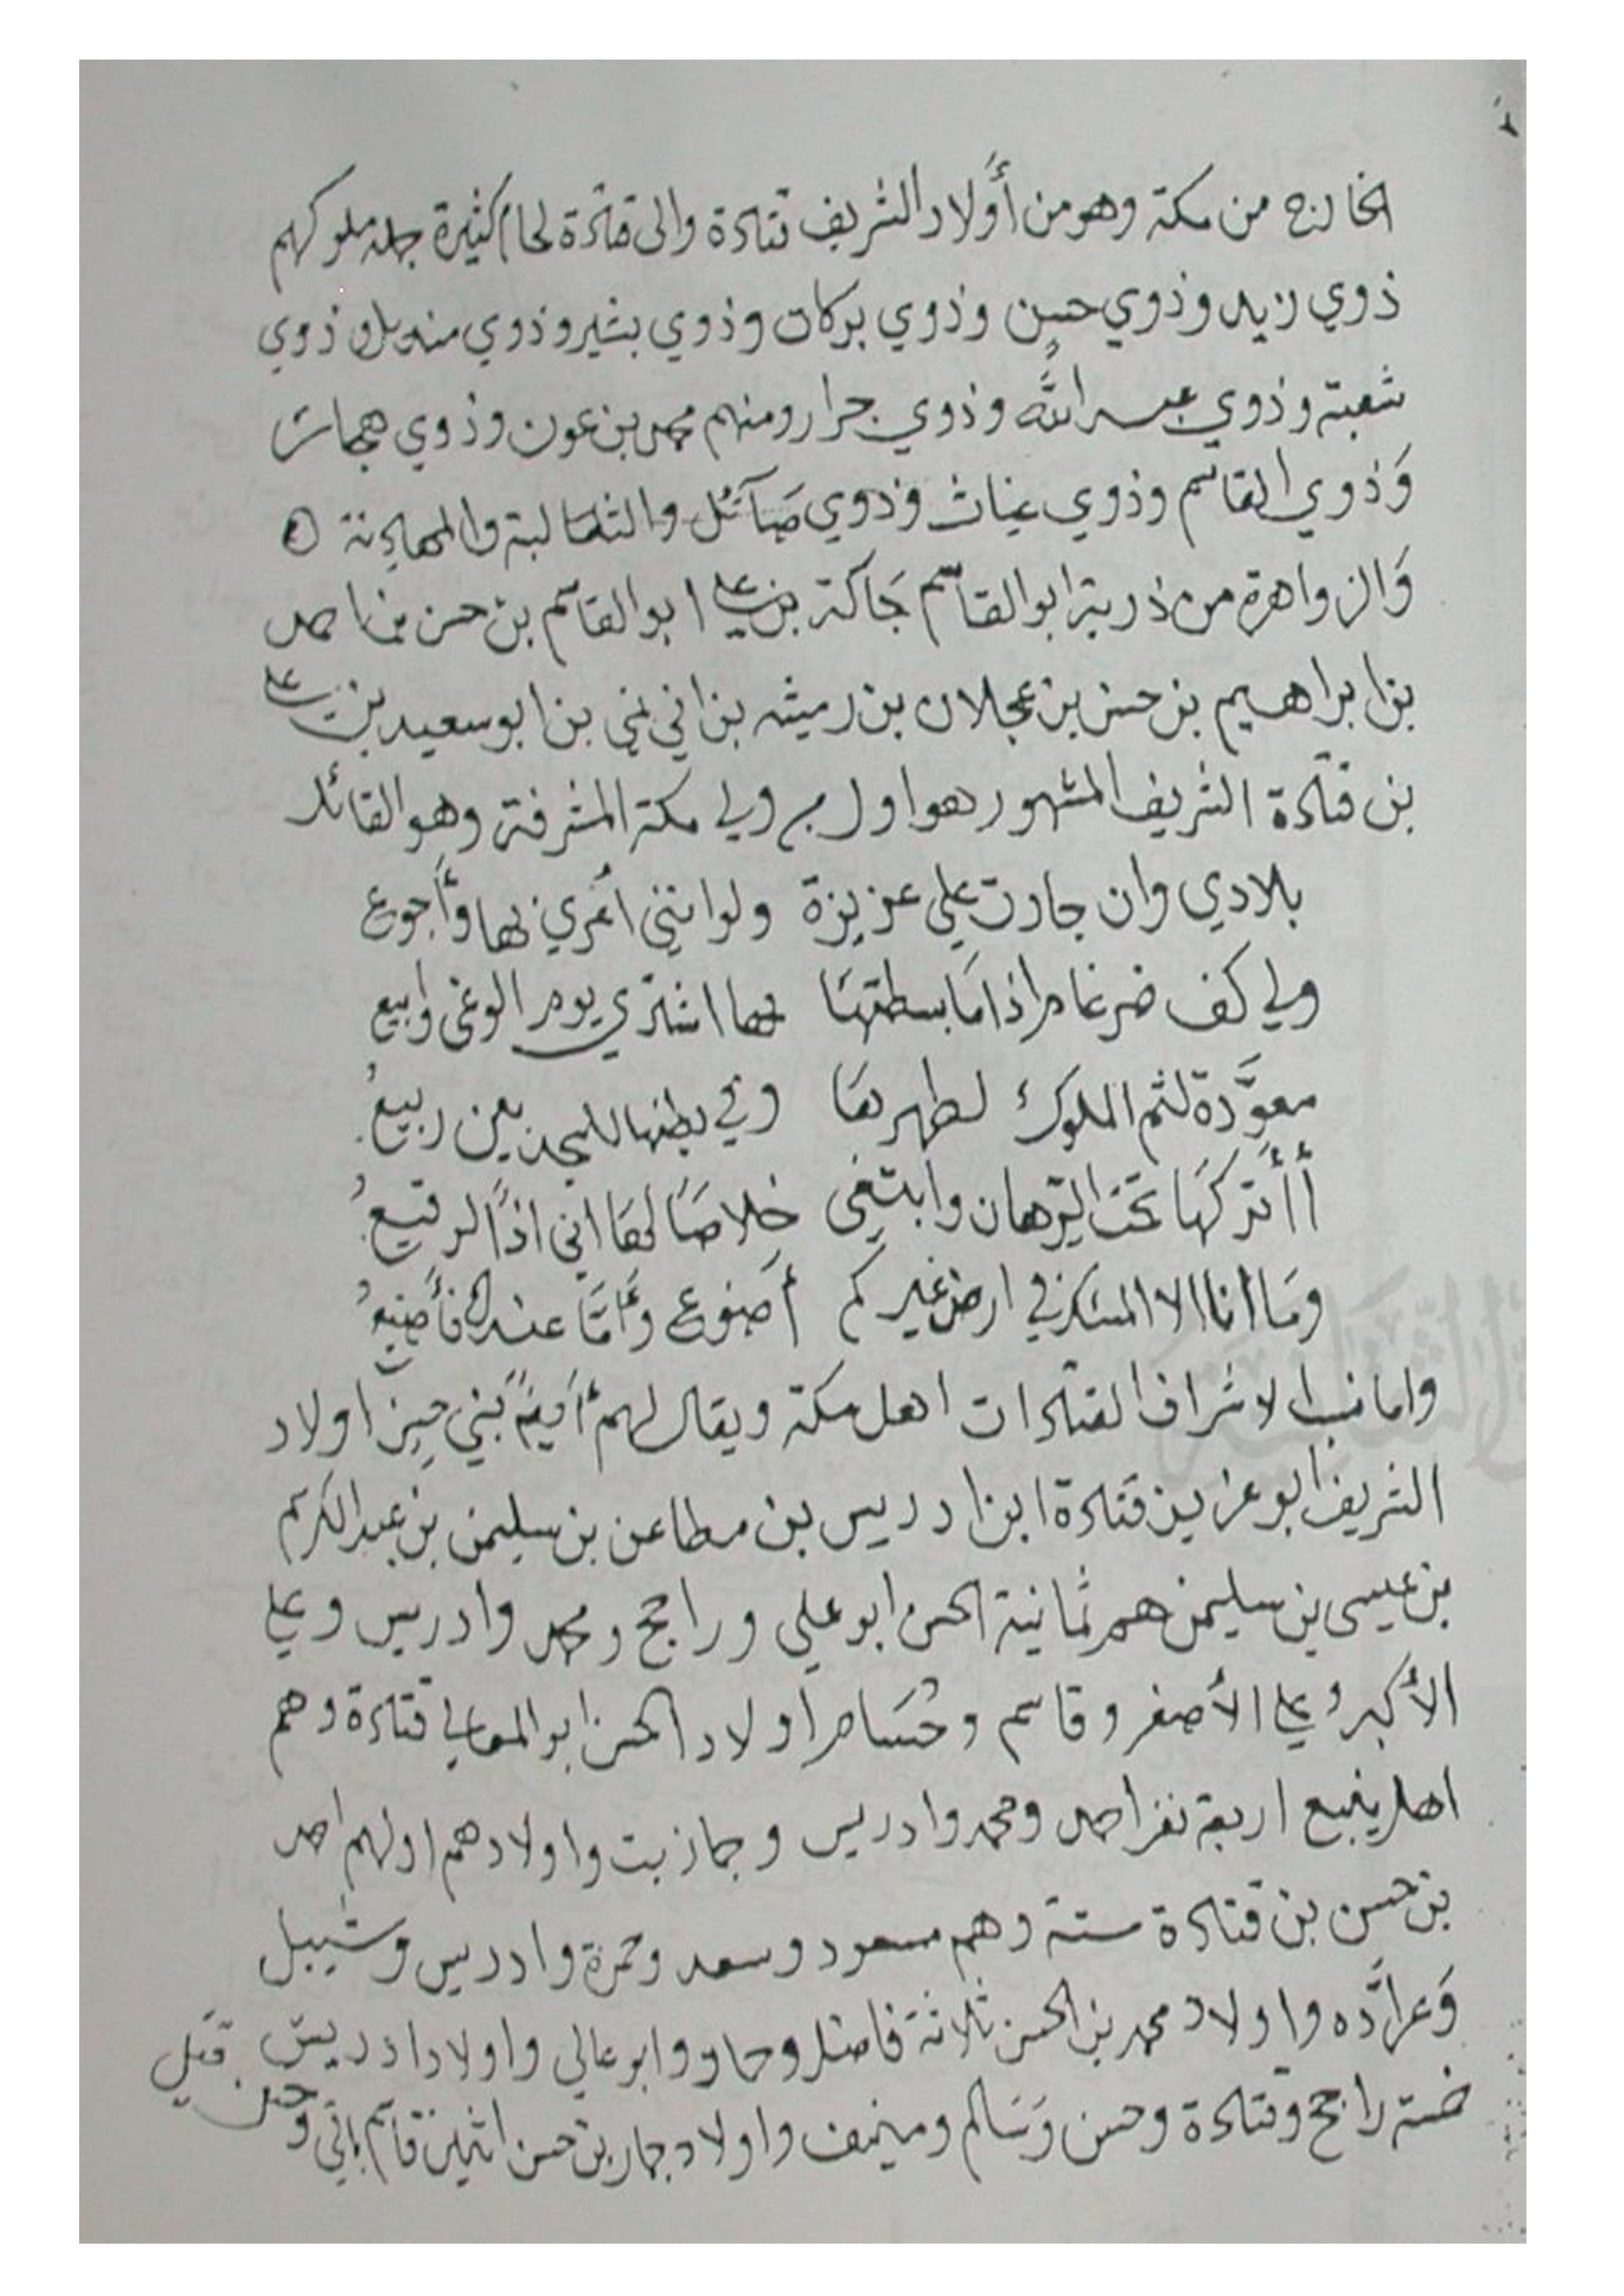 الخارج من مكة وهو من أولاد الشريف قتادة والى قتادة لحام كثيرة جملة ملوكهم
ذوي زيد وذوي حسن وذوي بركات وذوي بشير وذوي منديل وذوي
شعبة وذوي عبد الله وذوي جرار ومنهم محمد بن عون وذوي هجار
وَذوي القاسم وذوي عياث وذوي صَآئل والثعالبة والمهادنة
وَالزواهرة من ذرية ابو القاسم جَاكة بن علي ابو القاسم بن حسن بن احمد
بن ابراهيم بن حسن بن عجلان بن رميثه بن ابي نمي بن ابو سعيد بن علي
بن قتادة الشريف المشهور وهو اول من ولي مكة المشرفة وهو القائل
بلادي وان جارت علي عزيزة ولو انني اعري بها وأجوع
ولي كف ضرغام اذا مَا بسطتهَا بها اشتري يوم الوغى وابيع
معوَّدة لثم الملوك لظهرهَا وفي بطنها للمجدبين ربيعُ
أأتركهَا تحت الرهان وابتغى خلاصًا لهَا اني اذًا لرقيعُ
ومَا انا الا المسك في ارض غيركم أضوع وَأمَّا عندكم فأضيعُ
واما نسب الاشراف القتادات اهل مكة ويقال لهم أيضًا بني حسن اولاد
الشريف ابو عزيز قتادة ابن ادريس بن مطاعن بن سليمن بن عبد الكريم
بن عيسى بن سليمن هم ثمانية الحسن ابو علي وراجح ومحمد وادريس وعلي
الأكبر وعلي الأصغر وقاسم وحُسَام اولاد الحسن ابو المعالي قتادة وهم
اهل ينبع اربعة نفر احمد ومحمد وادريس وجماز بت واولادهم اولهم احمد
بن حسن بن قتادة ستة وهم مسعود وسعد وحمزة وادريس وشبيل
وَعرادَّه واولاد محمد بن الحسن ثلاثة فاضل وحماد وابو عالي واولاد ادريس قتيل
خمسة راجح وقتادة وحسن وَسَالم ومنيف واولاد جماز بن حسن اثنين قاسم وحسن